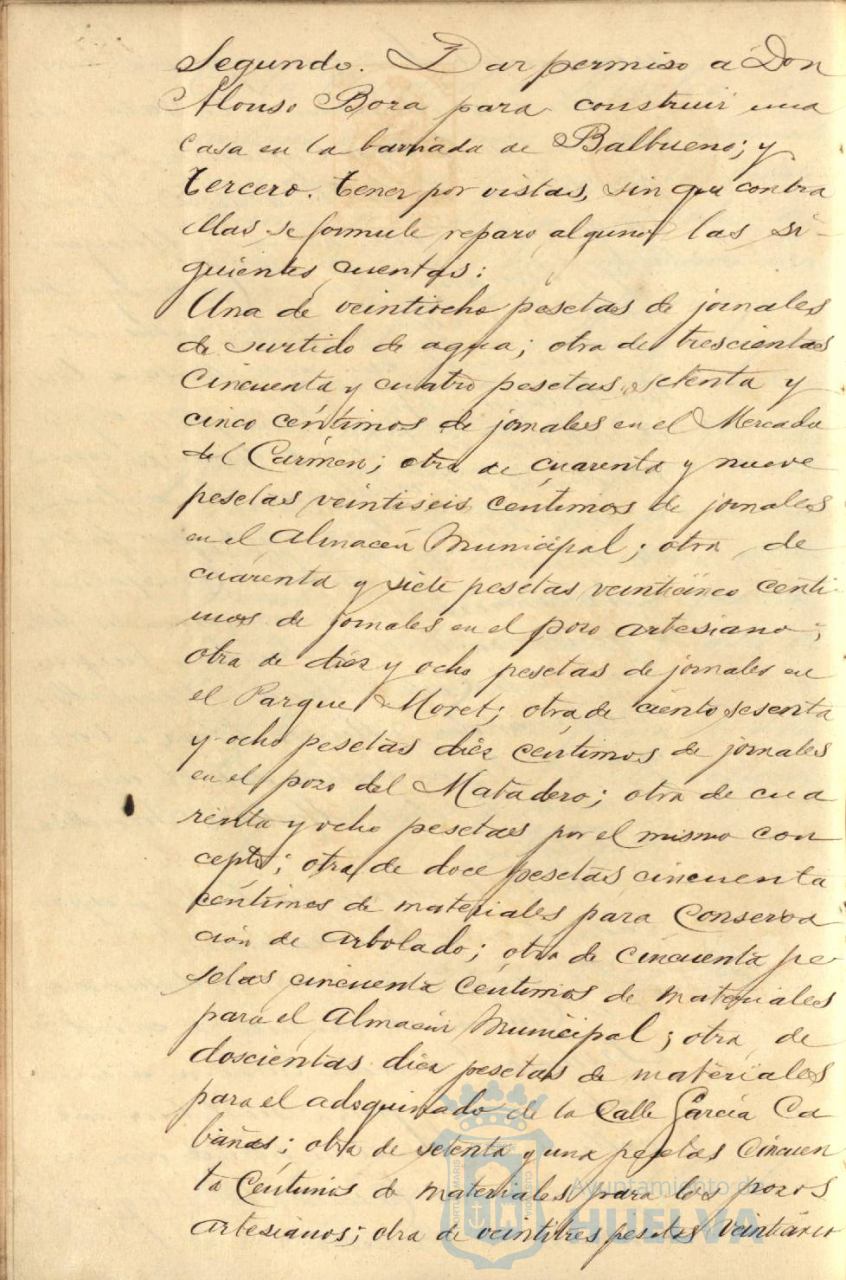 Segundo. Dar permiso a Don
Alonso Bora para construir una
casa en la barriada de Balbueno; y
Tercero. Tener por vistas, sin que contra
ellas se formule reparo alguno las si-
guientes cuentas:
Una de veintiocho pesetas de jornales
de surtido de agua; otra de trescientas
cincuenta y cuatro pesetas, setenta y
cinco céntimos de jornales en el Mercado
del Cármen; otra de cuarenta y nueve
pesetas veintiseis céntimos de jornales
en el Almacén Municipal; otra de
cuarenta y siete pesetas veinticinco centi-
mos de jornales en el pozo artesiano;
otra de diez y ocho pesetas de jornales en
el Parque Moret; otra de ciento sesenta
y ocho pesetas diez céntimos de jornales
en el pozo del Matadero; otra de cua
renta y ocho pesetas por el mismo con
cepto; otra de doce pesetas cincuenta
céntimos de materiales para Conserva
ción de Arbolado; otra de cincuenta pe-
setas cincuenta céntimos de materiales
para el Almacén Municipal; otra de
doscientas diez pesetas de materiales
para el adoquinado de la Calle García Ca
bañas; otra de setenta y una pesetas cincuen
ta céntimos de materiales para los pozos
artesianos; otra de veintitres pesetas veinticinco
Ayuntamiento de
HUELVA